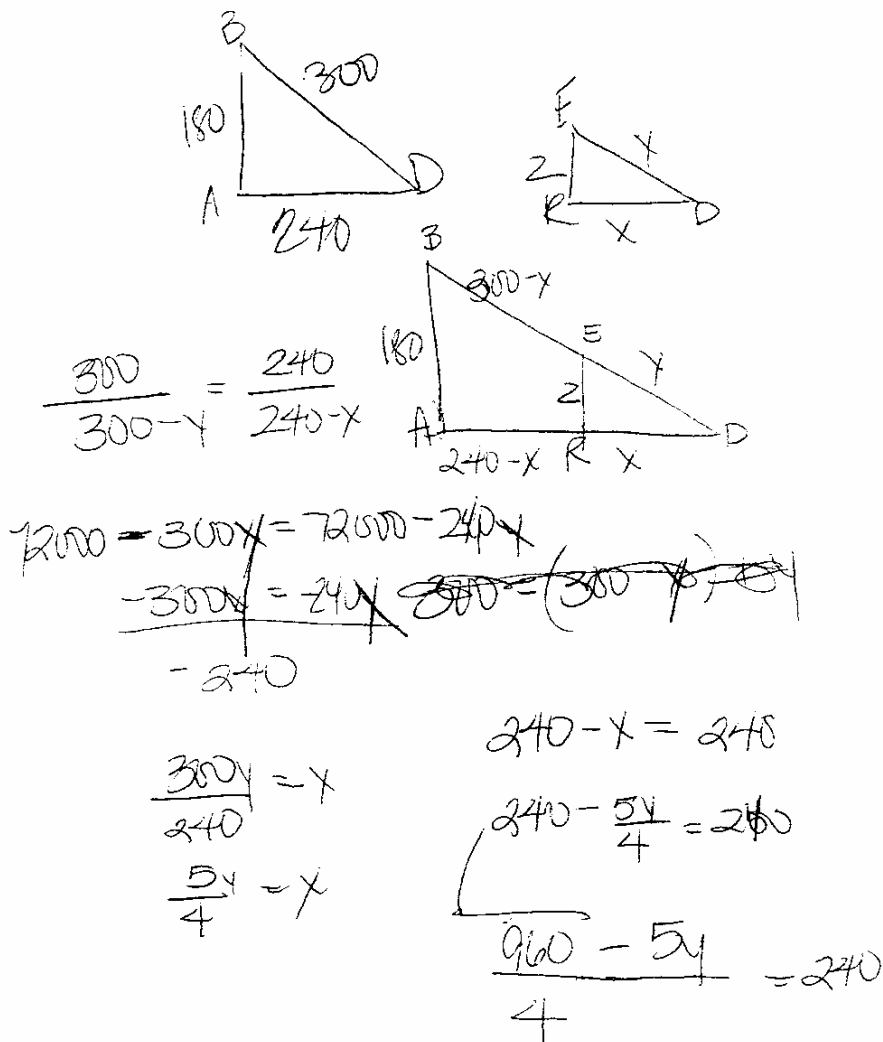 B
300
180
A
D
240
E
Y
Z
R
X
D
B
300-Y
E
180
Y
Z
A
240-X
R
X
D
300/(300-Y) = 240/(240-X)
72000 - 300X = 72000 - 240Y
-300X = -240Y
-240
240 - X = 240
300Y/240 = X
240 - 5Y/4 = 240
5Y/4 = X
(960 - 5Y)/4 = 240